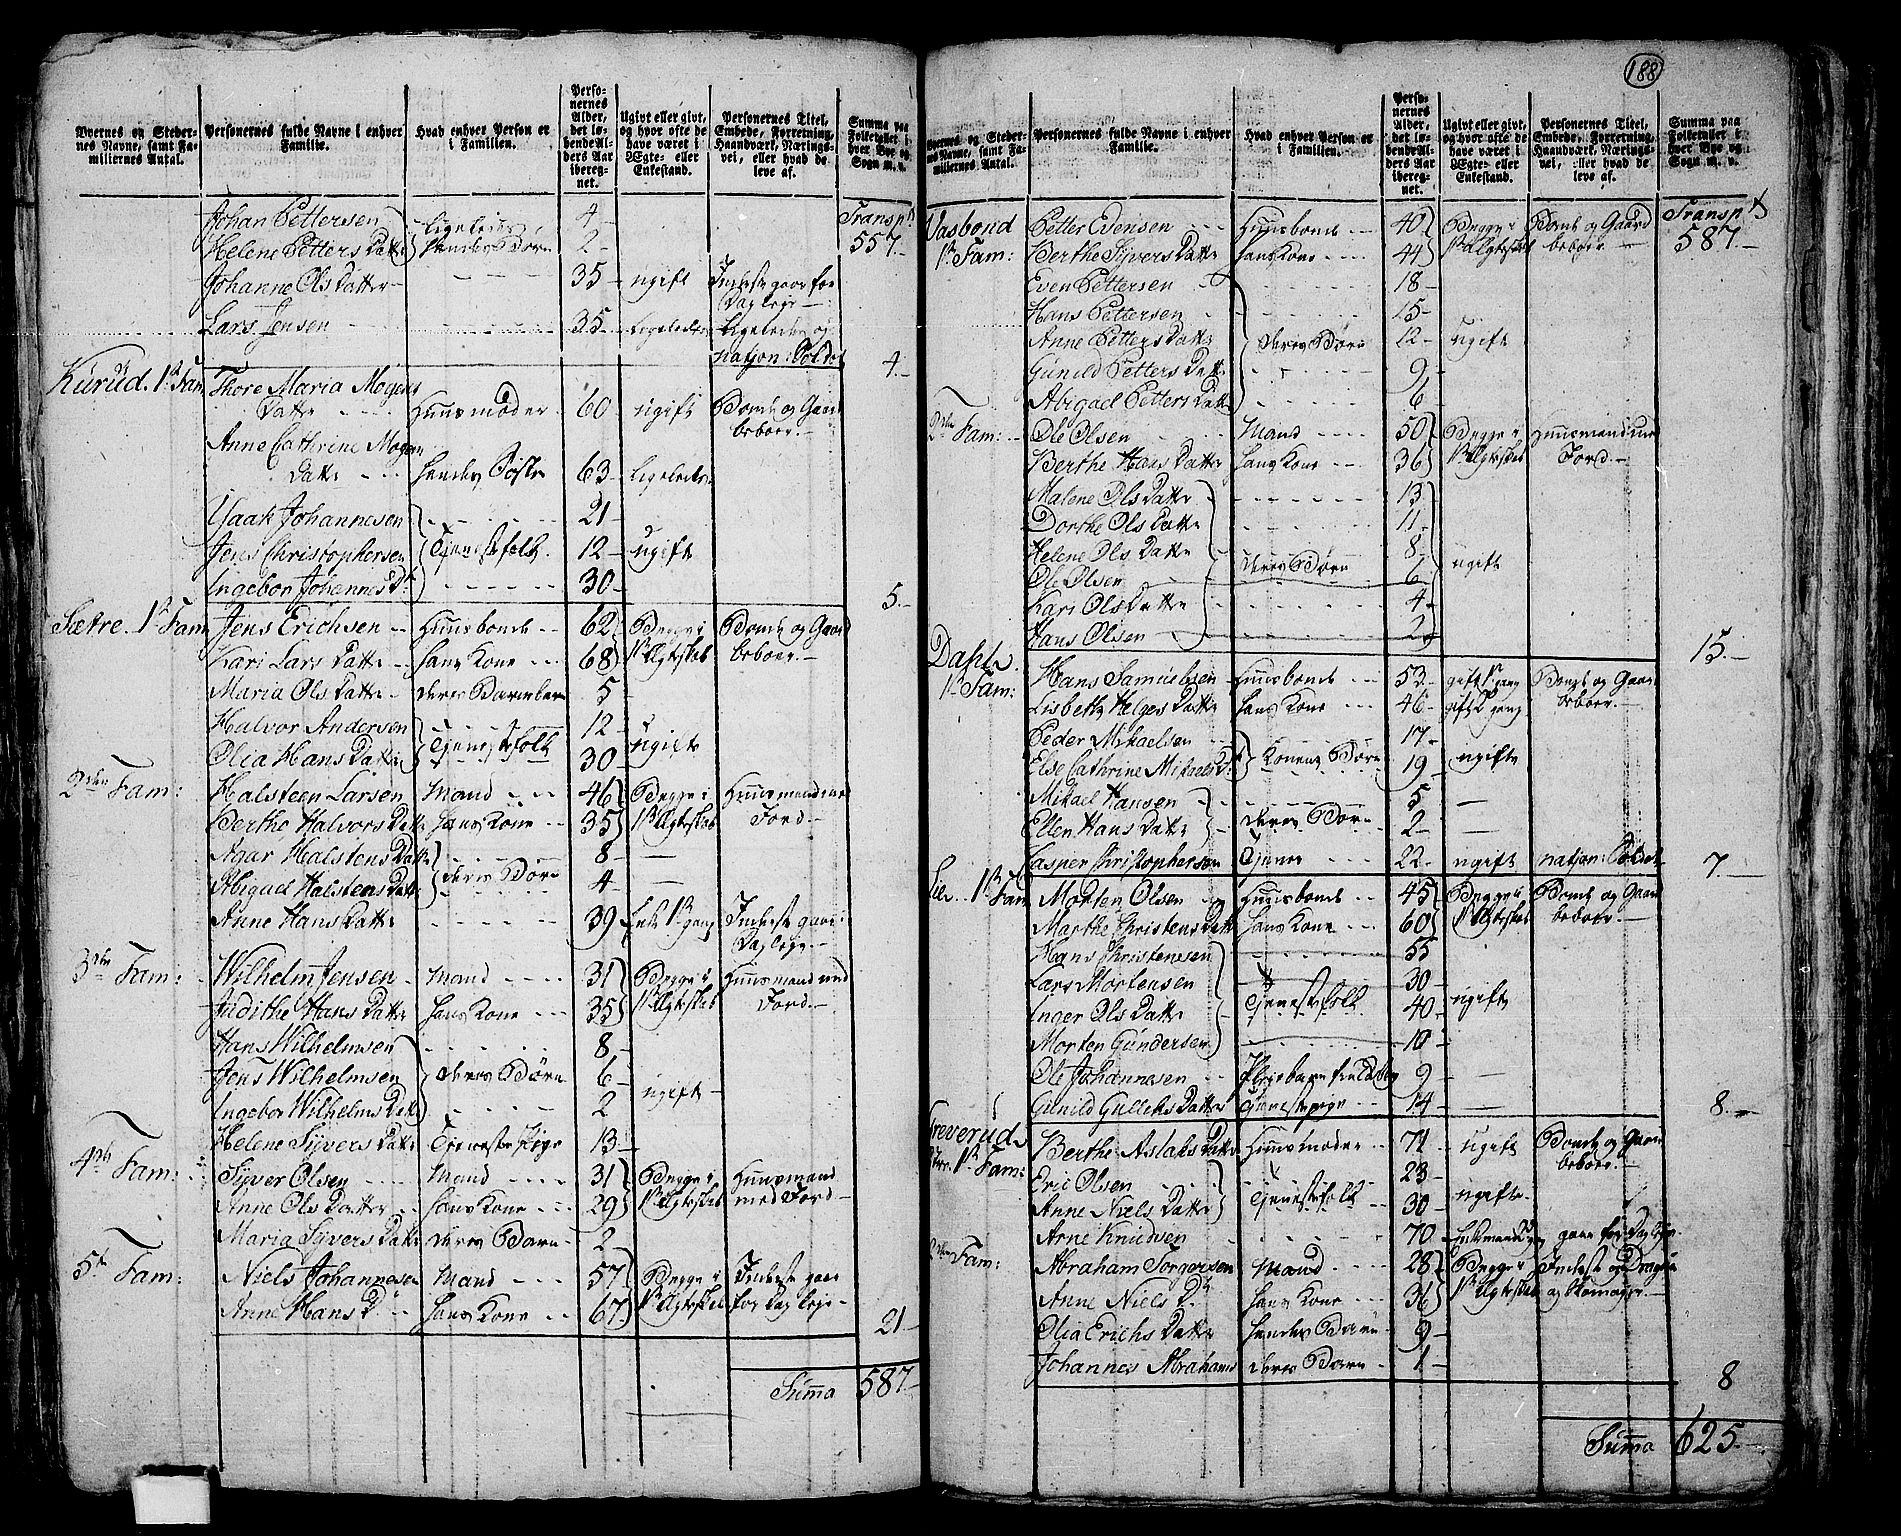 Byernes og Stedernes Navne, samt Familiernes Antal. | Personernes fulde Navne i enhver Familie. | Hvad enhver Person er i Familien. | Personernes Alder, det løbende Alders Aar iberegnet. | Ugivt eller givt, og hvor ofte de have været i Ægte- eller Enkestand. | Personernes Titel, Embede, Forretning, Haandværk, Næringsvei, eller hvad de leve af. | Summa paa Folketallet i hver Bye og Sogn m. v.
Johan Pettersen | ligeledes | 4 | Transpt
Helene Petters Datter | hendes Børn | 2 | 557
Johanne Ols Datter | 35 | ugift | Inderste gaar for Dagleje
Lars Jensen | 35 | ligeledes | ligeledes og natjon: Soldat | 4
Kürüd. 1te Fam | Thore Maria Mogens Datter | Huusmoder | 60 | ugift | Bonde og Gaardbeboer
Anne Cathrine Mogens Datter | hendes Søster | 63 | ligeledes
Isaak Johannesen | 21
Jens Christophersen | Tjenestefolk | 12 | ugift
Ingebor Johannes Dr | 30 | 5
Sætre. 1te Fam | Jens Erichsen | Huusbonde | 62 | Begge i | Bonde og Gaard
Kari Lars Datter | hans Kone | 68 | 1te Ægteskab | beboer
Maria Ols Datter | deres Barnebarn | 5
Halvor Andersen | 12
Olia Hans Datter | Tjenestefolk | 30 | ugift
2den Fam: | Halsteen Larsen | Mand | 46 | Begge i | Huusmand med
Berthe Halvors Datter | hans Kone | 35 | 1te Ægteskab | Jord
Agar Halstens Datter | 8
Abigael Halstens Datter | deres Børn | 4
Anne Hans Datter | 39 | Enke 1te gang | Inderste gaar i Dagleje
3die Fam: | Wilhelm Jensen | Mand | 31 | Begge i | Huusmand med
Judithe Hans Datter | hans Kone | 35 | 1te Ægteskab | Jord
Hans Wilhelmsen | 8
Jens Wilhelmsen | deres Børn | 6 | ugift
Ingebor Wilhelms Datter | 2
Helene Sijvers Datter | Tjeneste Pige | 13
4de Fam: | Sijver Olsen | Mand | 31 | Begge i | Huusmand
Anne Ols Datter | hans Kone | 29 | 1te Ægteskab | med Jord
Maria Sijvers Datter | deres Barn | 2
5te Fam: | Niels Johannesen | Mand | 57 | Begge i | Inderste gaar
Anne Hans Dr | hans Kone | 67 | 1te Ægteskab | for Dagleje | 21
Summa 587
188
Byernes og Stedernes Navne, samt Familiernes Antal. | Personernes fulde Navne i enhver Familie. | Hvad enhver Person er i Familien. | Personernes Alder, det løbende Alders Aar iberegnet. | Ugivt eller givt, og hvor ofte de have været i Ægte- eller Enkestand. | Personernes Titel, Embede, Forretning, Haandværk, Næringsvei, eller hvad de leve af. | Summa paa Folketallet i hver Bye og Sogn m. v.
Vasbond | Petter Evensen | Huusbonde | 40 | Begge i | Bonde og Gaard | Transpt
1te Fam: | Berthe Sijvers Datter | hans Kone | 44 | 1te Ægteskab | beboer | 587
Even Pettersen | 18
Hans Pettersen | 15
Anne Petters Datter | deres Børn | 12 | ugift
Gunild Petters Datter | 9
Abigael Petters Datter | 6
2den Fam: | Ole Olsen | Mand | 50 | Begge i | Huusmand med
Berthe Hans Datter | hans Kone | 36 | 1te Ægteskab | Jord
Malene Ols Datter | 13
Dorthe Ols Datter | 11
Helene Ols Datter | 8
Ole Olsen | deres Børn | 6 | ugift
Kari Ols Datter | 4
Hans Olsen | 2 | 15
Dahle. 1te Fam: | Hans Samuelsen | Huusbonde | 53 | gift 1te gang | Bonde og Gaard
Lisbeth Helges Datter | hans Kone | 46 | gift 2 gang | beboer
Peder Mikaelsen | 17
Else Cathrine Mikaels Dr | Konens Børn | 19 | ugifte
Mikael Hansen | 5
Ellen Hans Datter | deres Børn | 2
Casper Christophersen | Tjener | 22 | ugift | natjon: Soldat | 7
Lie. 1te Fam | Morten Olsen | Huusbonde | 45 | Begge i | Bonde og Gaard
Marthe Christens Datter | hans Kone | 60 | 1te Ægteskab | beboer
Hans Christensen | 55
Lars Mortensen | 30
Inger Ols Datter | Tjenestefolk | 40 | ugift
Morten Gundersen | 10
Ole Johannesen | 9
Gunild Gulleks Datter | Tjenestepige | 14 | 8
Greverud 1te Fam: | Berthe Aslaks Datter | Huusmoder | 71 | ugift | Bonde og Gaardbeboer
Eric Olsen | 23
Anne Niels Datter | Tjenestefolk | 30 | ugifte
Arne Knudsen | 70 | gaar for Dagleje
2den Fam: | Abraham Torgersen | Mand | 28 | Begge i | Inderste og Dragun
Anne Niels Dr | hans Kone | 36 | 1te Ægteskab | og Skomager
Olia Erichs Datter | hendes Barn | 9
Johannes Abrahams | deres Barn | 1 | 8
Summa 625